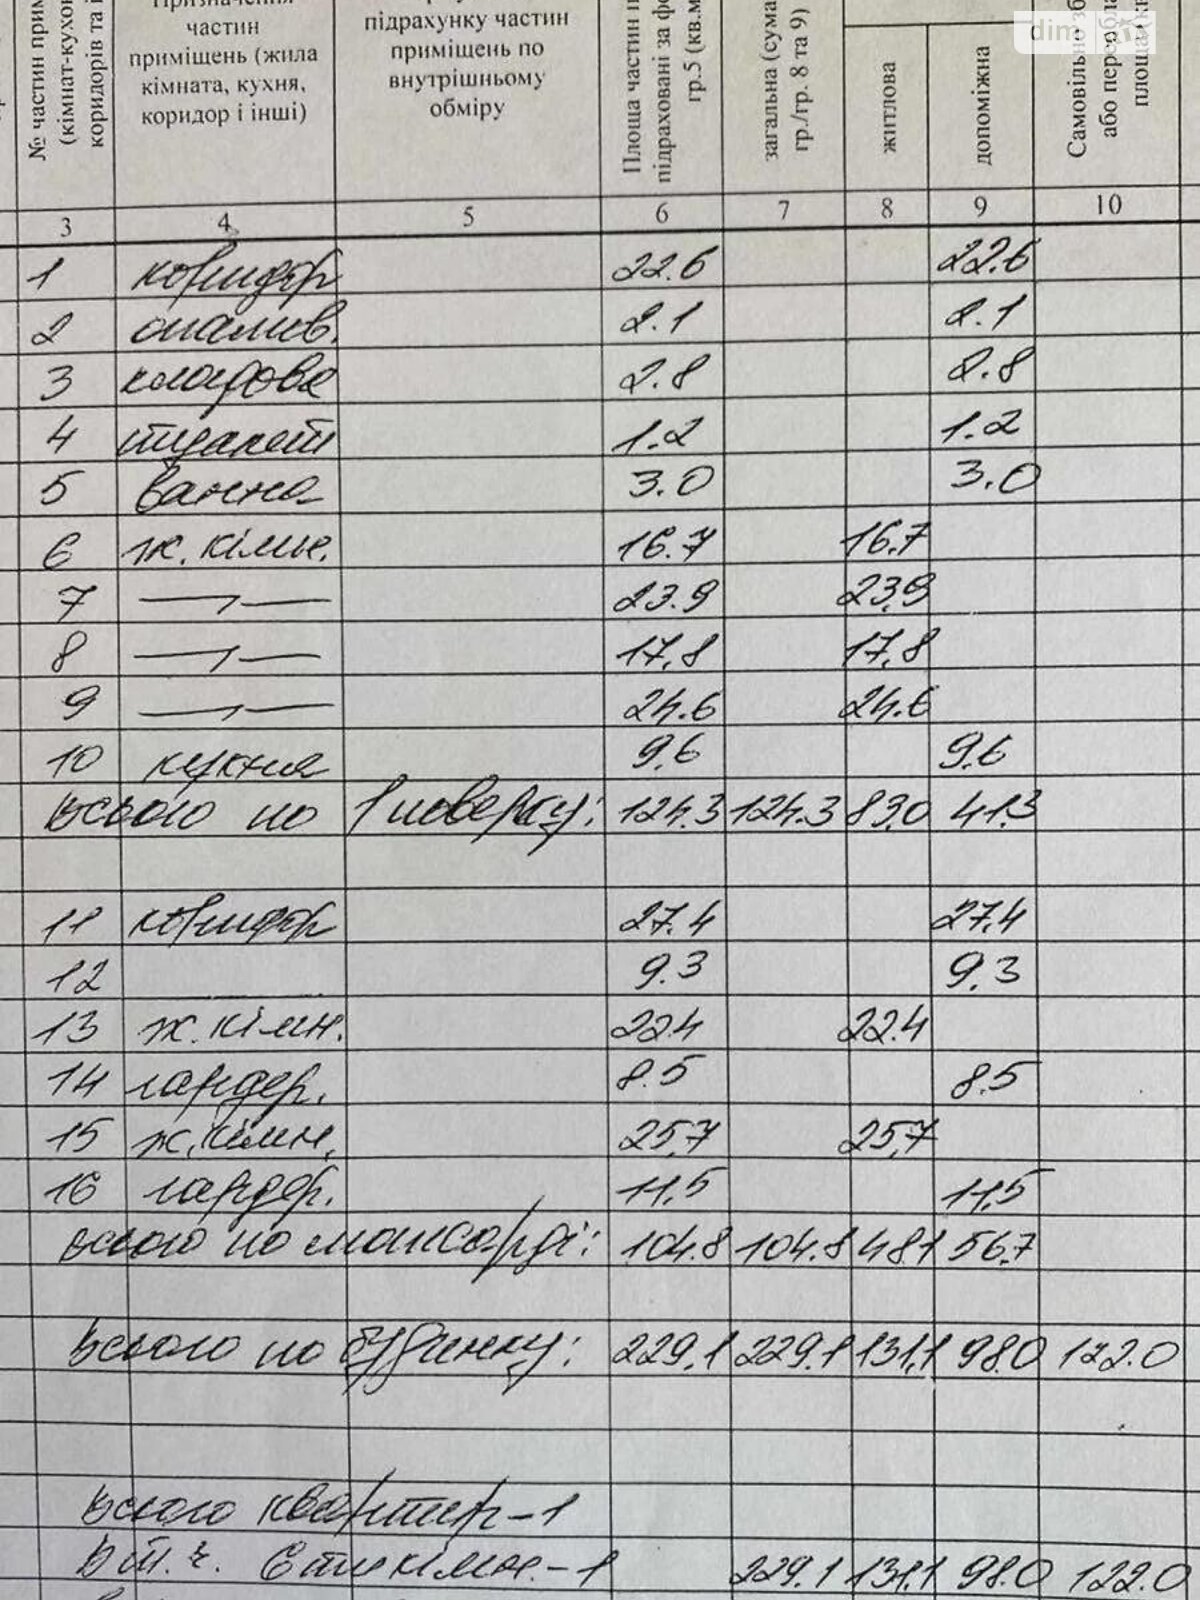 dim
№ частин прим
(кімнат-кухон
коридорів та і
Призначення
частин
приміщень (жила
кімната, кухня,
коридор і інші)
підрахунку частин
приміщень по
внутрішньому
обміру
Площа частин п
підраховані за фо
гр.5 (кв.м
загальна (сума
гр./гр. 8 та 9)
житлова
допоміжна
Самовільно зб
або переобла
площа (кв
3 4 5 6 7 8 9 10
1 коридор 22.6 22.6
2 опалюв. 2.1 2.1
3 кладова 2.8 2.8
4 туалет 1.2 1.2
5 ванна 3.0 3.0
6 ж. кімн. 16.7 16.7
7 —〃— 23.9 23,9
8 —〃— 17,8 17,8
9 —〃— 24.6 24.6
10 кухня 9,6 9,6
Всього по 1 поверху: 124.3 124.3 83,0 41.3
11 коридор 27.4 27,4
12 9.3 9.3
13 ж. кімн. 22.4 22.4
14 гардер. 8.5 8.5
15 ж. кімн. 25,7 25,7
16 гардер. 11,5 11,5
Всього по мансарді: 104.8 104.8 48.1 56.7
Всього по будинку: 229,1 229.1 131,1 98.0 122.0
Всього квартир - 1
В т. ч. 6ти кімн. - 1 229.1 131.1 98.0 122.0